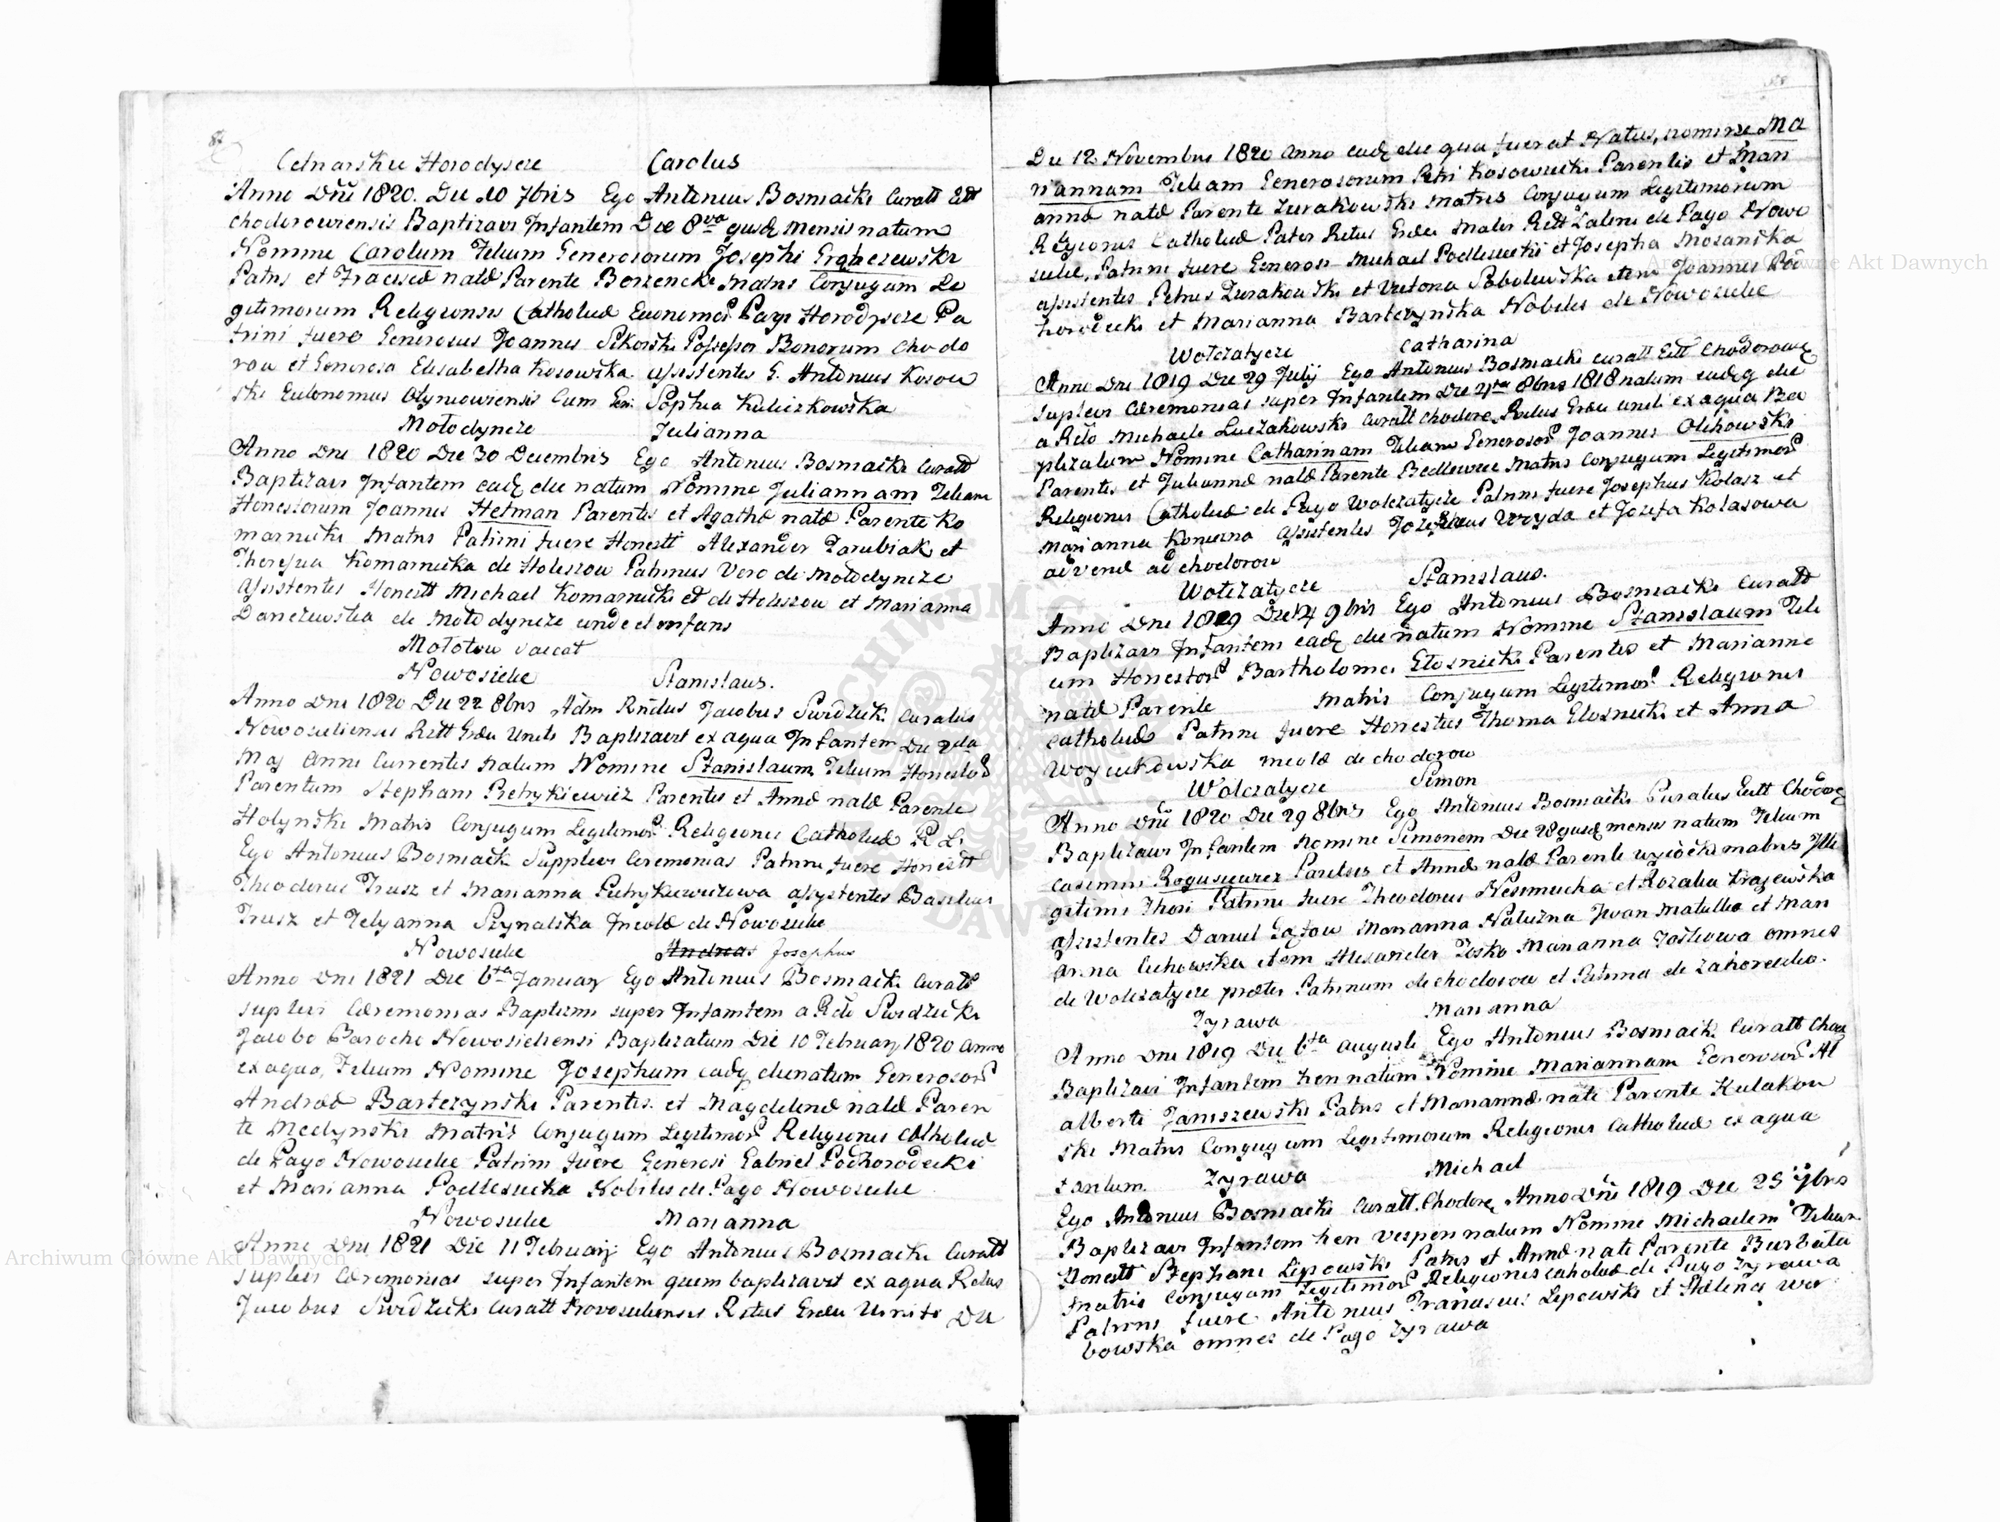 Cetnarskie Horodyscze Carolus
Anno Dni 1820. Die 10 7bris Ego Antonius Bosniacki Curatt Ecct
Chodoroviensis Baptizavi Infantem Die 8va ejusd mensis natum
Nomine Carolum Filium Generosorum Josephi
Patris et natæ Parente Matris Conjugum Le
gitimorum Religionis Catholicæ Economos Pagi Horodyscze Pa
trini fuere Generosus Joannes Sikorski Possessor Bonorum Chodo
row et Generosa Elisabetha Kosowska assistentes G. Antonius Kosow
ski Cum Sophia Kuliczkowska
Mołodyncze Julianna
Anno Dni 1820 Die 30 Decembris Ego Antonius Bosniacki Curatt
Baptizavi Infantem eadq die natum Nomine Juliannam Filiam
Honestorum Joannis Hetman Parentis et Agathæ natæ Parente Ko
marnicki Matris Patrini fuere Honesti Alexander et
Komarnicka de Holeszow Patrinus Vero de Mołodyncze
Assistentes Honestt Michael Komarnicki et de Holeszow et Marianna
de Mołodyncze unde et infans
Mołotow vaccat
Nowosielce Stanislaus.
Anno Dni 1820 Die 22 8bris Adm Rndus Jacobus Swidzicki Curatus
Nowosieliensis Ritt Græci Uniti Baptizavit ex aqua Infantem Die 2da
Maj Anni Currentis natum Nomine Stanislaum Filium Honestor
Parentum Stephani Pietrykiewicz Parentis et Annæ natæ Parente
Hołynski Matris Conjugum Legitimor Religionis Catholicæ R L.
Ego Antonius Bosniacki Supplevi Ceremonias Patrini fuere Honestt
Theodorus Trusz et Marianna Pietrykiewiczowa assystentes Basilius
Trusz et Szynalska Incolæ de Nowosielce
Nowosielce Andreas Josephus
Anno Dni 1821 Die 6ta January Ego Antonius Bosniacki Curatt
suplevi Cæremonias Baptismi super Infantem a Rdo Swidzicki
Jacobo Parocho Nowosielensi Baptizatum Die 10 February 1820 anno
ex aqua, Filium Nomine Josephum eadq die natum Generosor
Andreæ Bartczynski Parentis et Magdelenæ natæ Paren
te Medynski Matris Conjugum Legitimor Religionis Catholicæ
de Pago Nowosielce Patrini fuere Generosi Gabriel Podhorodecki
et Marianna Podlesiecka Nobiles de Pago Nowosielce
Nowosielce Marianna
Anno Dni 1821 Die 11 February Ego Antonius Bosniacki Curatt
suplevi Cæremonias super Infantem quem baptizavit ex aqua Rdus
Jacobus Swidzicki Curatt Nowosielensis Ritus Græci Uniti Die
Die 12 Novembris 1820 Anno eadq die qua fuerat Natus, nomine Ma
riannam Filiam Generosorum Petri Kosowiecki Parentis et Mari
annæ natæ Parente Zurakowski Matris Conjugum Legitimorum
Religionis Catholicæ Pater Ritus Græci Mater Ritt Latini de Pago Nowo
sielce, Patrini fuere Generosi Michael Podlesiecki et Josepha Mozanska
assistentes Petrus Zurakowski et Victoria Sobolewska item Joannes Pod
horodecki et Marianna Bartczynska Nobiles de Nowosielce
Wołczatycze Catharina
Anno Dni 1819 Die 29 Julij Ego Antonius Bosniacki Curatt Ecctt Chodorow
suplevi Cæremonias super Infantem Die 4ta 8bris 1818 natum eadq die
a Rdo Michaele Luczakowski Curatt Chodor Ritus Græci uniti ex aqua Ba
ptizatum Nomine Catharinam Filiam Generosor Joannis Olihowski
Parentis et Juliannæ natæ Parente Matris Conjugum Legitimor
Religionis Catholicæ de Pago Wołczatycze Patrini fuere Josephus Kolasz et
Marianna assistentes et Jozefa Kolasowa
advenæ ad Chodorow
Wołczatycze Stanislaus.
Anno Dni 1819 Die 14 9bris Ego Antonius Bosniacki Curatt
Baptizavi Infantem eadq die natum Nomine Stanislaum Fili
um Honestor Bartholomei Parentis et Mariannæ
natæ Parente Matris Conjugum Legitimor Religionis
Catholicæ Patrini fuere Honestus Thoma et Anna
Woyciechowska incolæ de Chodorow
Wołczatycze Simon
Anno Dni 1820 Die 29 8bris Ego Antonius Bosniacki Curatus Ecctt Chodor
Baptizavi Infantem Nomine Simonem Die 28 ejusdq mensis natum Filium
Casimiri Parentis et Annæ natæ Parente Matris Ille
gitimi Thori Patrini fuere Theodorus et Rozalia Krajewska
assistentes Daniel Marianna Iwan et Mari
anna item Alexander Josko Marianna Joskowa omnes
de Wołczatycze præter Patrinum de Chodorow et Patrina de
Zyrawa Marianna
Anno Dni 1819 Die 6ta Augusti Ego Antonius Bosniacki Curatt Chod
Baptizavi Infantem heri natum Nomine Mariannam Generosor Al
alberti Janiszewski Patris et Mariannæ nate Parente Kulakow
ski Matris Conjugum Legitimorum Religionis Catholicæ ex aqua
tantum. Zyrawa Michael
Ego Antonius Bosniacki Curatt. Chodor Anno Dni 1819 Die 25 9bris
Baptizavi Infantem heri vesperi natum Nomine Michaelem Filium
Honestt Stephani Lipowski Patris et Annæ nate Parente Burbela
Matris Conjugum Legitimor Religionis Catholicæ de Pago Zyrawa
Patrini fuere Antonius Franciscus Lipowski et Helena Wor
bowska omnes de Pago Zyrawa
Archiwum Główne Akt Dawnych
Archiwum Główne Akt Dawnych